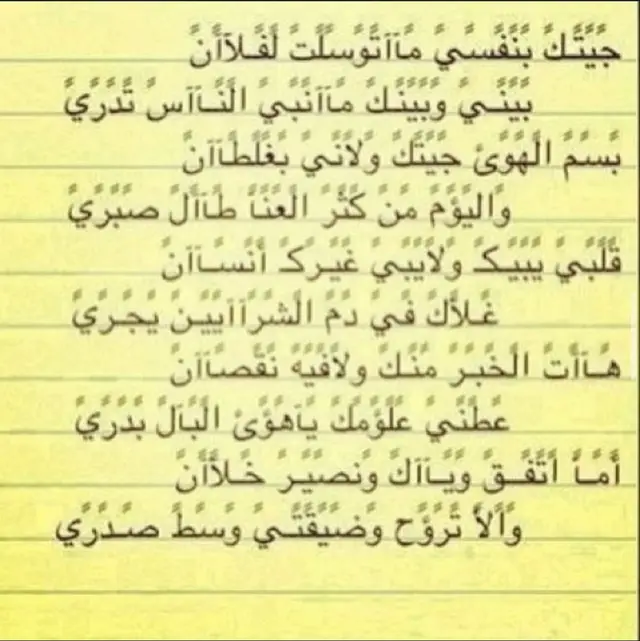 جًيًتًكً بًنًفًسًيً مًآآتًوًسًلًتً لًفًلآآنً
بًيًنًيً وًبًيًنًكً مًآآنًبًيً الًنًآآسً تًدًرًيً
بًسًمً الًهًوًىً جًيًتًكً وًلآنًيً بًغًلًطًآآنً
وًالًيًوًمً مًنً كًثًرً الًعًنًآ طًآآلً صًبًرًيً
قًلًبًيً يًبًيًكً وًلآيًبًيً غًيًرًكً أنًسًآآنً
غًلآكً فًيً دًمً الًشًرًآآيًيًنً يًجًرًيً
هًآآتً الًخًبًرً مًنًكً وًلآفًيًهً نًقًصًآآنً
عًطًنًيً عًلًوًمًكً يًآهًوًىً الًبًآلً بًدًرًيً
أمًآ أتًفًقً وًيًآآكً وًنًصًيًرً خًلآآنً
وًالآ تًرًوًحً وًضًيًقًتًيً وًسًطً صًدًرًيً